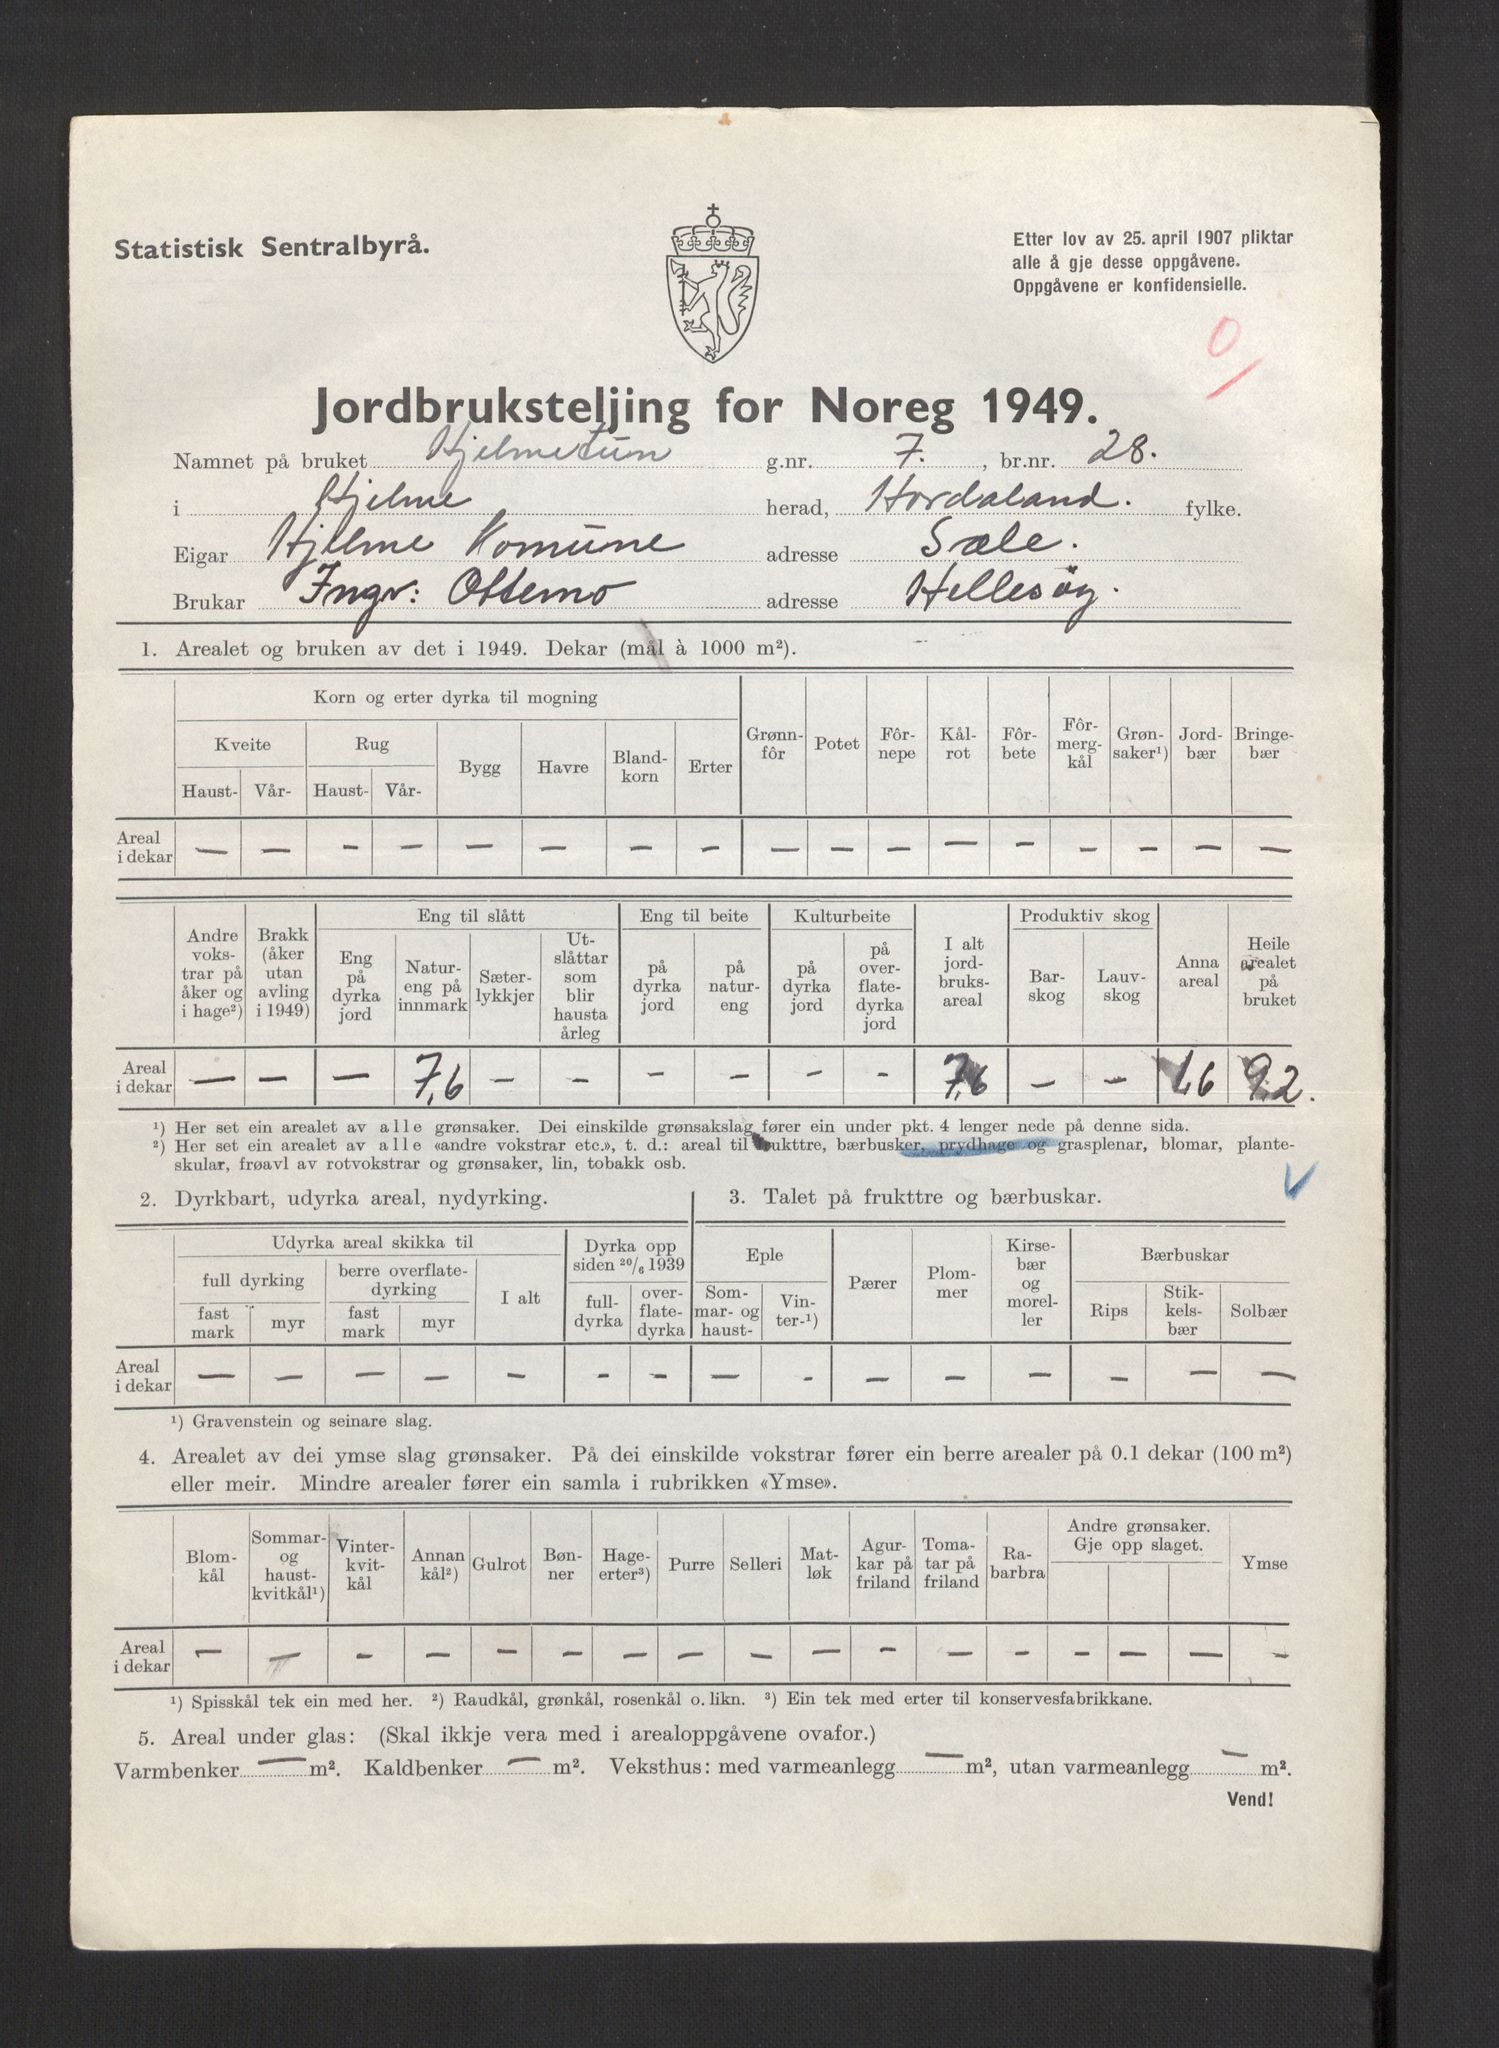 Statistisk Sentralbyrå.
Etter lov av 25. april 1907 pliktar
alle å gje desse oppgåvene.
Oppgåvene er konfidensielle.
0
Jordbruksteljing for Noreg 1949.
Namnet på bruket Hjelmetun g.nr. 7. , br.nr. 28.
i Hjelme herad, Hordaland. fylke.
Eigar Hjelme Komune adresse Sæle.
Brukar Ingv: Ottemo adresse Hellesöy.
1. Arealet og bruken av det i 1949. Dekar (mål à 1000 m²).
Korn og erter dyrka til mogning
Kveite Rug Bygg Havre Bland-korn Erter Grønn-fôr Potet Fôr-nepe Kål-rot Fôr-bete Fôr-merg-kål Grøn-saker¹) Jord-bær Bringe-bær
Haust- Vår- Haust- Vår-
Areal i dekar — — — — — — — — — — — — — — — — —
Andre voks-trar på åker og i hage²) Brakk (åker utan avling i 1949) Eng til slått Eng til beite Kulturbeite I alt jord-bruks-areal Produktiv skog Anna areal Heile arealet på bruket
Eng på dyrka jord Natur-eng på innmark Sæter-lykkjer Ut-slåttar som blir hausta årleg på dyrka jord på natur-eng på dyrka jord på over-flate-dyrka jord Bar-skog Lauv-skog
Areal i dekar — — — 7,6 — — — — — — 7,6 — — 1,6 9,2.
¹) Her set ein arealet av alle grønsaker. Dei einskilde grønsakslag fører ein under pkt. 4 lenger nede på denne sida.
²) Her set ein arealet av alle «andre vokstrar etc.», t. d.: areal til frukttre, bærbusker, prydhage og grasplenar, blomar, plante-
skular, frøavl av rotvokstrar og grønsaker, lin, tobakk osb.
2. Dyrkbart, udyrka areal, nydyrking.
Udyrka areal skikka til Dyrka opp siden 20/6 1939
full dyrking berre overflate-dyrking I alt full-dyrka over-flate-dyrka
fast mark myr fast mark myr
3. Talet på frukttre og bærbuskar.
Eple Pærer Plom-mer Kirse-bær og morel-ler Bærbuskar
Som-mar- og haust- Vin-ter-¹) Rips Stik-kels-bær Solbær
Areal i dekar — — — — — — — — — — — — — — —
¹) Gravenstein og seinare slag.
4. Arealet av dei ymse slag grønsaker. På dei einskilde vokstrar fører ein berre arealer på 0.1 dekar (100 m²)
eller meir. Mindre arealer fører ein samla i rubrikken «Ymse».
Blom-kål Sommar- og haust-kvitkål¹) Vinter-kvit-kål Annan kål²) Gulrot Bøn-ner Hage-erter³) Purre Selleri Mat-løk Agur-kar på friland Toma-tar på friland Ra-barbra Andre grønsaker. Gje opp slaget. Ymse
Areal i dekar — — — — — — — — — — — — — — — — —
¹) Spisskål tek ein med her. ²) Raudkål, grønkål, rosenkål o. likn. ³) Ein tek med erter til konservesfabrikkane.
5. Areal under glas: (Skal ikkje vera med i arealoppgåvene ovafor.)
Varmbenker — m². Kaldbenker — m². Veksthus: med varmeanlegg — m², utan varmeanlegg — m².
Vend!